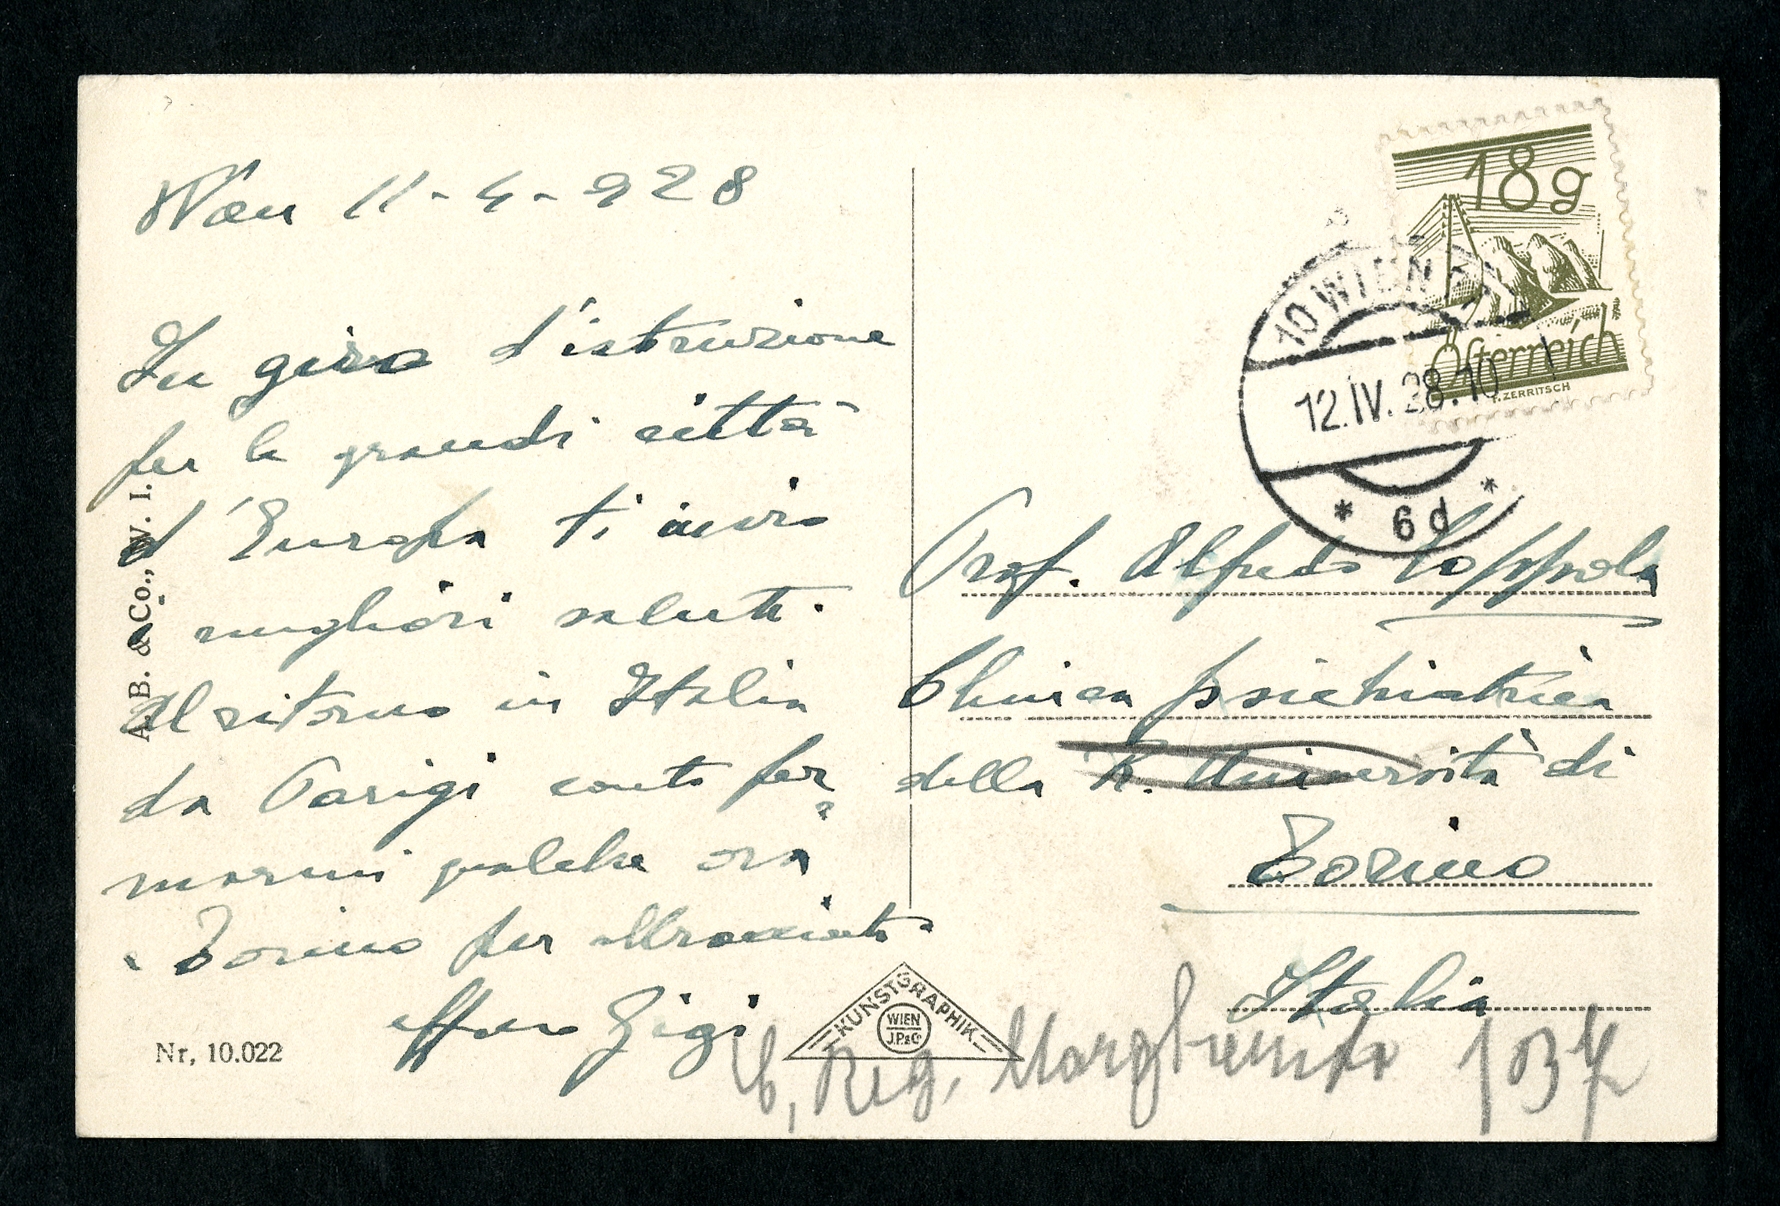 Wien 11-4-928
In giro d'istruzione
per le grandi città
d'Europa ti invio
i migliori saluti.
Al ritorno in Italia
da Parigi conto fer
marmi qualche ora
a Torino per abbracciarti.
Gigi
Nr, 10.022
A. B. & Co., W. I.
KUNSTGRAPHIK
WIEN
J.P.&Co
18g
Österreich
F. ZERRITSCH
10 WIEN
12.IV.28.10
* 6d *
Prof. Alfredo Coppola
Clinica psichiatrica
della R. Università di
Torino
Italia
C, Reg. Margherita 103